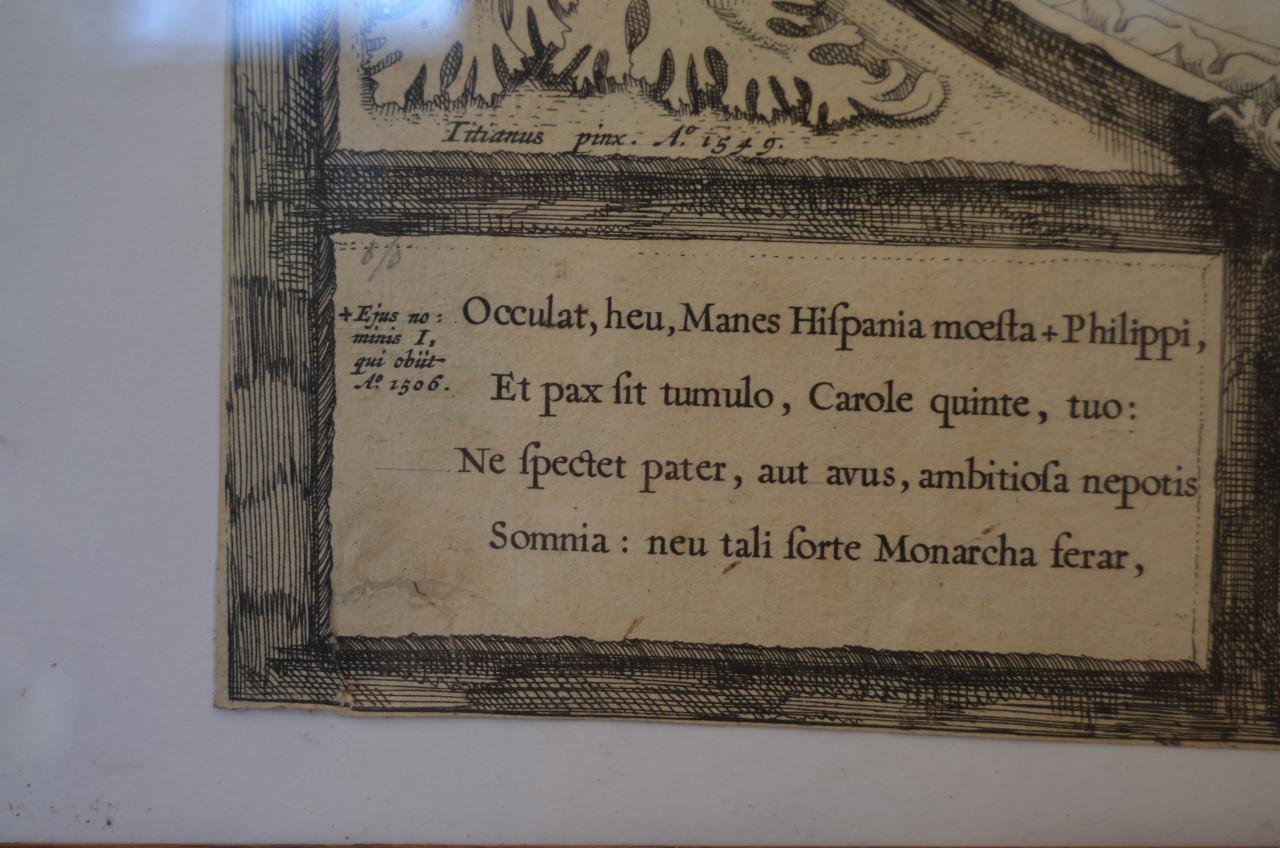 Titianus pinx. Aº 1549.
+Ejus no:
minis I,
qui obiit
Aº 1506.
Occulat, heu, Manes Hiſpania mœſta + Philippi,
Et pax ſit tumulo, Carole quinte, tuo:
Ne ſpectet pater, aut avus, ambitioſa nepotis
Somnia: neu tali ſorte Monarcha ferar,